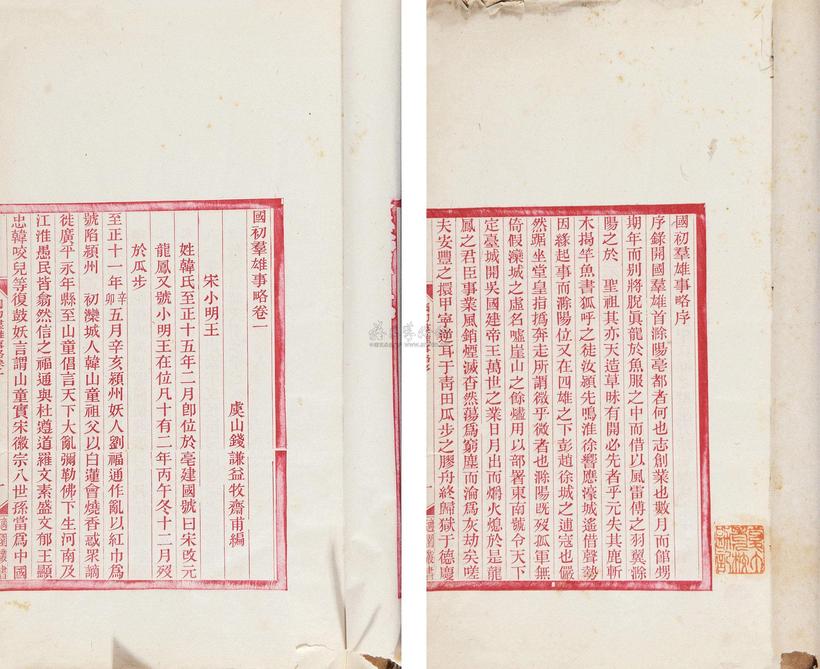 國初羣雄事略序
序錄開國羣雄首滁陽亳都者何也志創業也數月而館甥
期年而別將脫眞龍於魚服之中而借以風雷傅之羽翼滁
陽之於　聖祖其亦天造草昧有開必先者乎元失其鹿斬
木揭竿魚書狐呼之徒汝潁先鳴淮徐響應濠城遙借聲勢
因緣起事而滁陽位又在四雄之下彭趙徐城之逋寇也儼
然踞坐堂皇指撝奔走所謂微乎微者也滁陽旣歿孤軍無
倚假灤城之虛名噓崖山之餘燼用以部署東南號令天下
定臺城開吳國建帝王萬世之業日月出而爝火熄於是龍
鳳之君臣事業風銷煙滅杳然蕩爲窮塵而淪爲灰劫矣嗟
夫安豐之擐甲寧逆耳于靑田瓜步之膠舟終歸獄于德慶
國初羣雄事略卷一
虞山錢謙益牧齋甫編
宋小明王
姓韓氏至正十五年二月卽位於亳建國號曰宋改元
龍鳳又號小明王在位凡十有二年丙午冬十二月歿
於瓜步
至正十一年辛卯五月辛亥潁州妖人劉福通作亂以紅巾爲
號陷潁州　初欒城人韓山童祖父以白蓮會燒香惑衆謫
徙廣平永年縣至山童倡言天下大亂彌勒佛下生河南及
江淮愚民皆翕然信之福通與杜遵道羅文素盛文郁王顯
忠韓咬兒等復鼓妖言謂山童實宋徽宗八世孫當爲中國
適園叢書